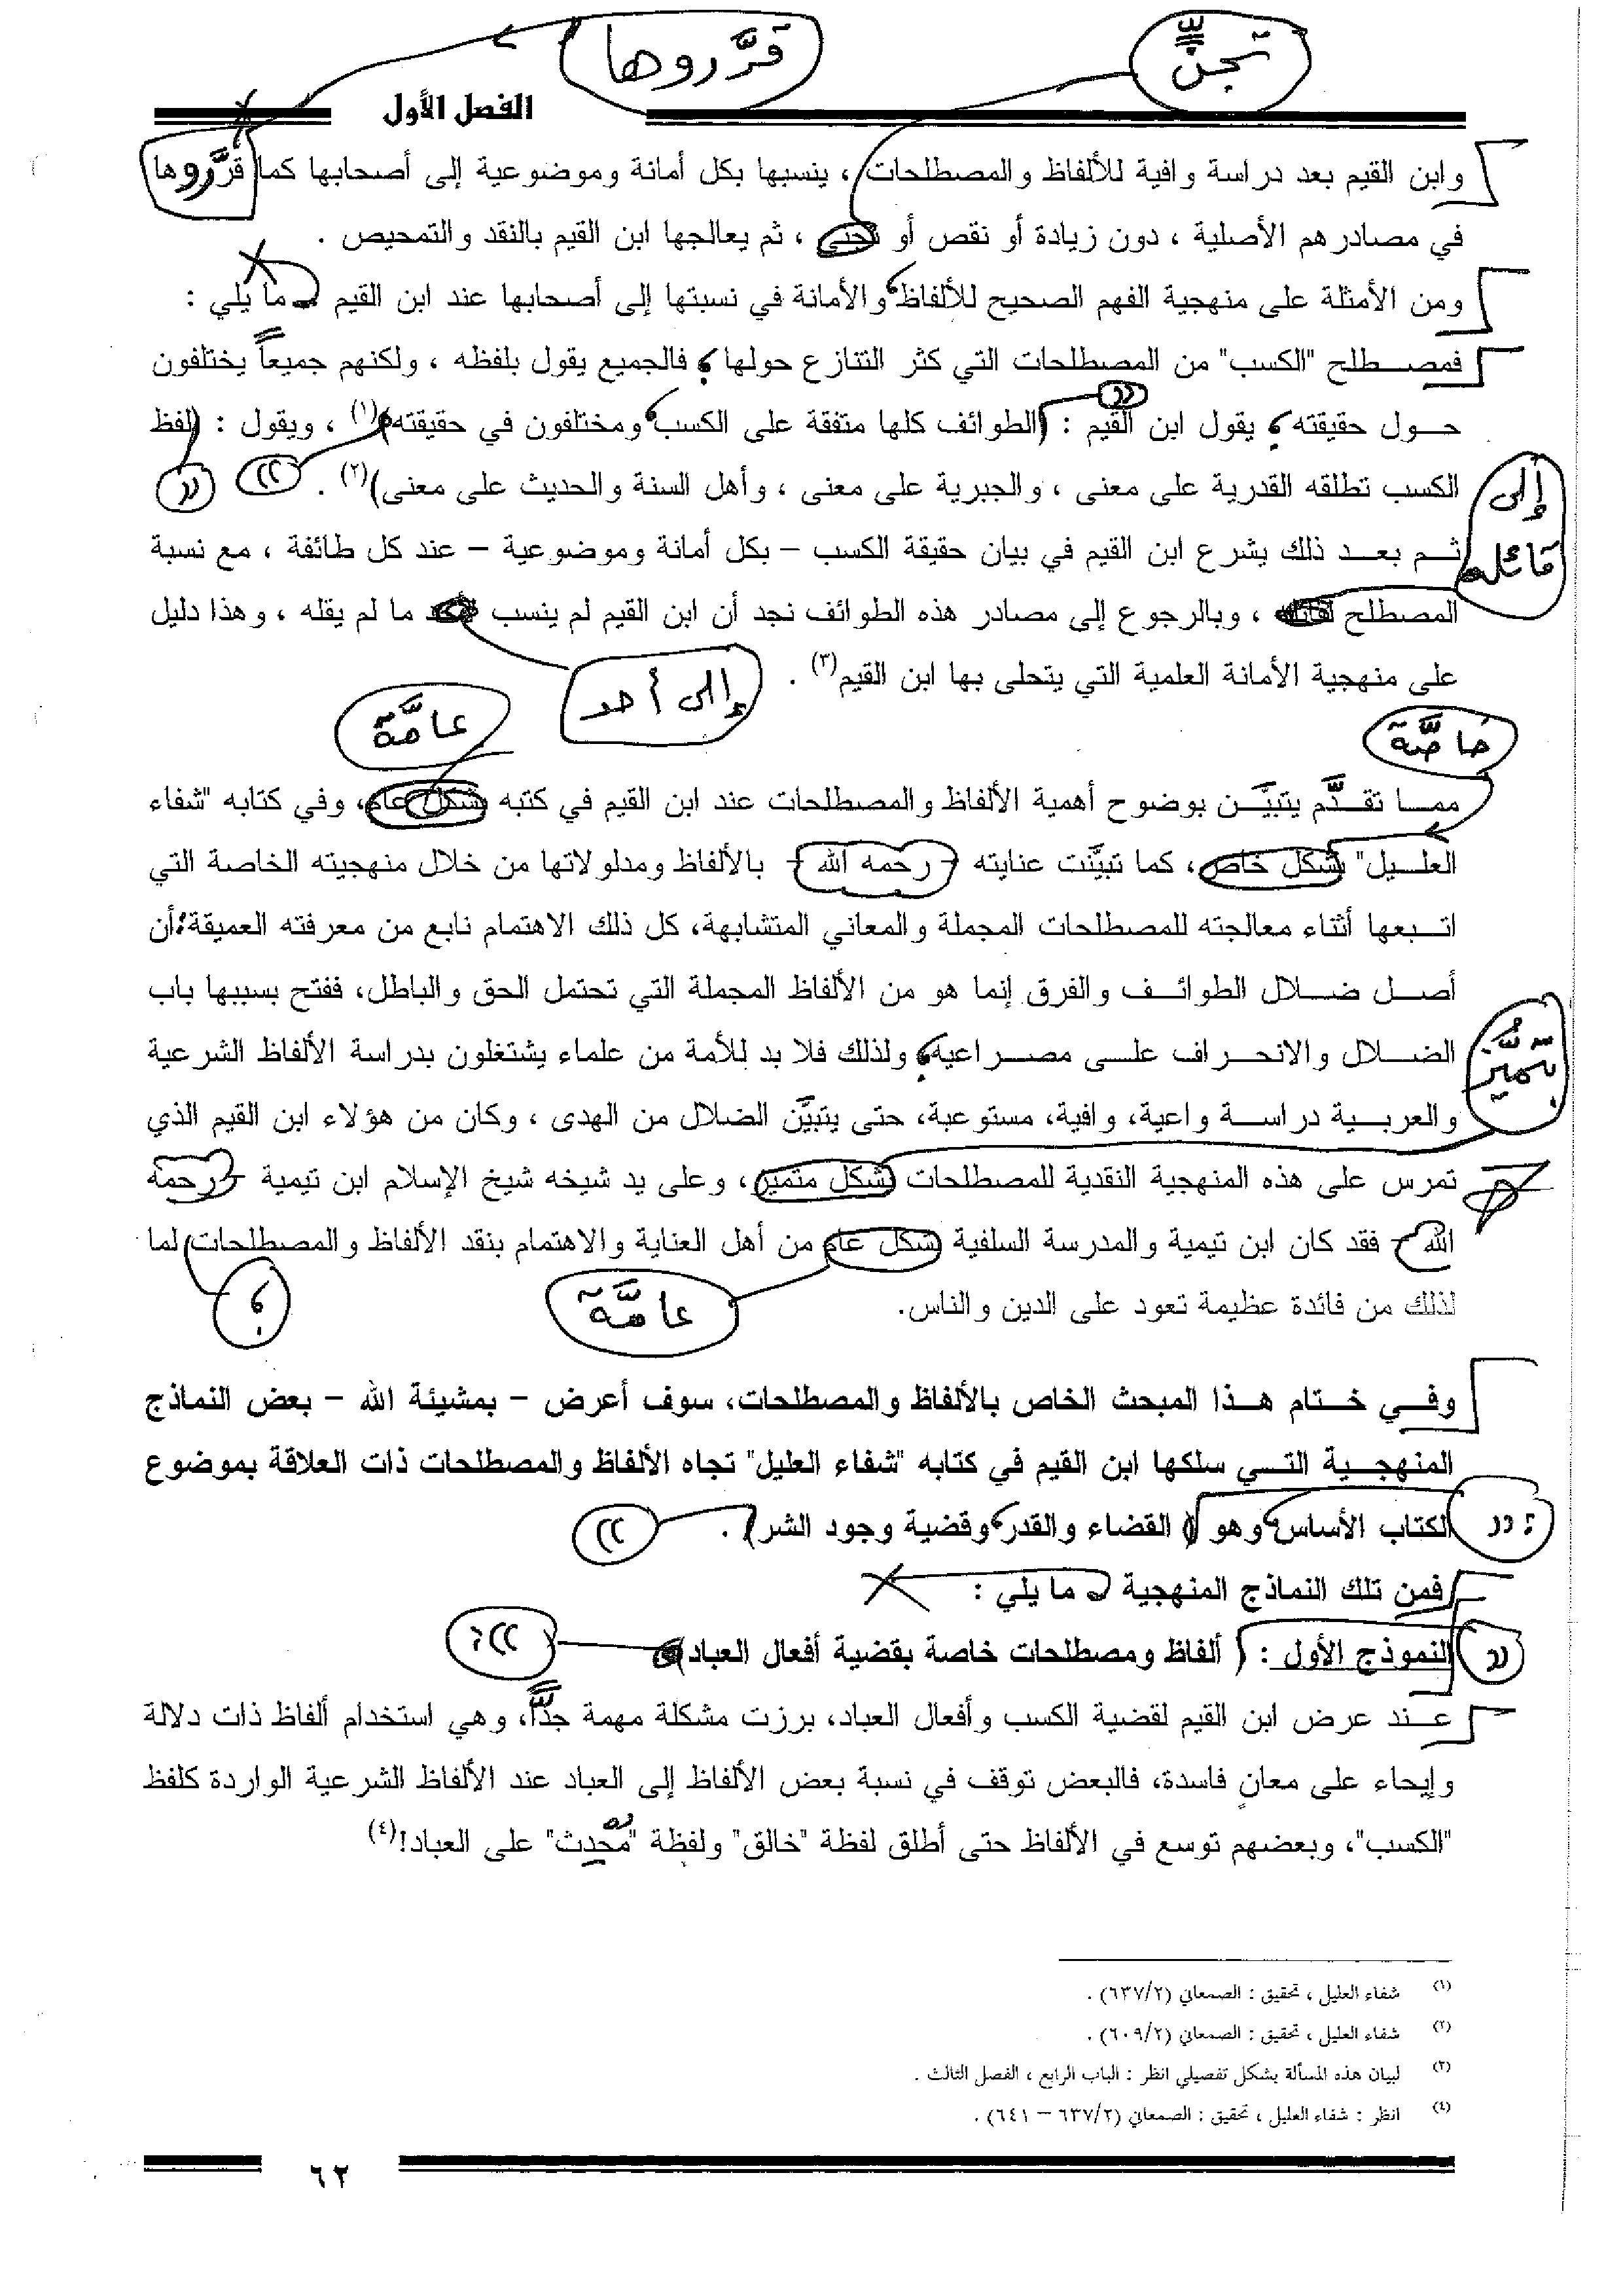 تجنٍّ
قرَّروها
الفصل الأول
وابن القيم بعد دراسة وافية للألفاظ والمصطلحات ، ينسبها بكل أمانة وموضوعية إلى أصحابها كما قرَّروها
في مصادرهم الأصلية ، دون زيادة أو نقص أو تجني ، ثم يعالجها ابن القيم بالنقد والتمحيص .
ومن الأمثلة على منهجية الفهم الصحيح للألفاظ والأمانة في نسبتها إلى أصحابها عند ابن القيم ما يلي :
فمصطلح "الكسب" من المصطلحات التي كثر التنازع حولها ، فالجميع يقول بلفظه ، ولكنهم جميعاً يختلفون
حول حقيقته ، يقول ابن القيم : (الطوائف كلها متفقة على الكسب ومختلفون في حقيقته)(١) ، ويقول : (لفظ
الكسب تطلقه القدرية على معنى ، والجبرية على معنى ، وأهل السنة والحديث على معنى)(٢) .
إلى
قائله
ثم بعد ذلك يشرع ابن القيم في بيان حقيقة الكسب – بكل أمانة وموضوعية – عند كل طائفة ، مع نسبة
المصطلح لقائله ، وبالرجوع إلى مصادر هذه الطوائف نجد أن ابن القيم لم ينسب ما لم يقله ، وهذا دليل
على منهجية الأمانة العلمية التي يتحلى بها ابن القيم(٣) .
إلى أحد
عامَّة
خاصَّة
مما تقدَّم يتبيَّن بوضوح أهمية الألفاظ والمصطلحات عند ابن القيم في كتبه بشكل عام، وفي كتابه "شفاء
العليل" بشكل خاص، كما تبيَّنت عنايته – رحمه الله – بالألفاظ ومدلولاتها من خلال منهجيته الخاصة التي
اتبعها أثناء معالجته للمصطلحات المجملة والمعاني المتشابهة، كل ذلك الاهتمام نابع من معرفته العميقة؛ أن
أصل ضلال الطوائف والفرق إنما هو من الألفاظ المجملة التي تحتمل الحق والباطل، ففتح بسببها باب
الضلال والانحراف على مصراعيه، ولذلك فلا بد للأمة من علماء يشتغلون بدراسة الألفاظ الشرعية
بتميُّز
والعربية دراسة واعية، وافية، مستوعبة، حتى يتبيَّن الضلال من الهدى ، وكان من هؤلاء ابن القيم الذي
تمرس على هذه المنهجية النقدية للمصطلحات بشكل متميز، وعلى يد شيخه شيخ الإسلام ابن تيمية – رحمه
الله – فقد كان ابن تيمية والمدرسة السلفية بشكل عام من أهل العناية والاهتمام بنقد الألفاظ والمصطلحات، لما
لذلك من فائدة عظيمة تعود على الدين والناس.
عامَّة
؛
وفي ختام هذا المبحث الخاص بالألفاظ والمصطلحات، سوف أعرض – بمشيئة الله – بعض النماذج
المنهجية التي سلكها ابن القيم في كتابه "شفاء العليل" تجاه الألفاظ والمصطلحات ذات العلاقة بموضوع
الكتاب الأساس، وهو ( القضاء والقدر، وقضية وجود الشر) .
فمن تلك النماذج المنهجية ما يلي :
النموذج الأول : ( ألفاظ ومصطلحات خاصة بقضية أفعال العباد)
عند عرض ابن القيم لقضية الكسب وأفعال العباد، برزت مشكلة مهمة جدًّا، وهي استخدام ألفاظ ذات دلالة
وإيحاء على معانٍ فاسدة، فالبعض توقف في نسبة بعض الألفاظ إلى العباد عند الألفاظ الشرعية الواردة كلفظ
"الكسب"، وبعضهم توسع في الألفاظ حتى أطلق لفظة "خالق" ولفظة "مُحْدِث" على العباد!(٤)
(١) شفاء العليل ، تحقيق : الصمعاني (٦٣٧/٢) .
(٢) شفاء العليل ، تحقيق : الصمعاني (٦٠٩/٢) .
(٣) لبيان هذه المسألة بشكل تفصيلي انظر : الباب الرابع ، الفصل الثالث .
(٤) انظر : شفاء العليل ، تحقيق : الصمعاني (٦٣٧/٢ – ٦٤١) .
٦٢